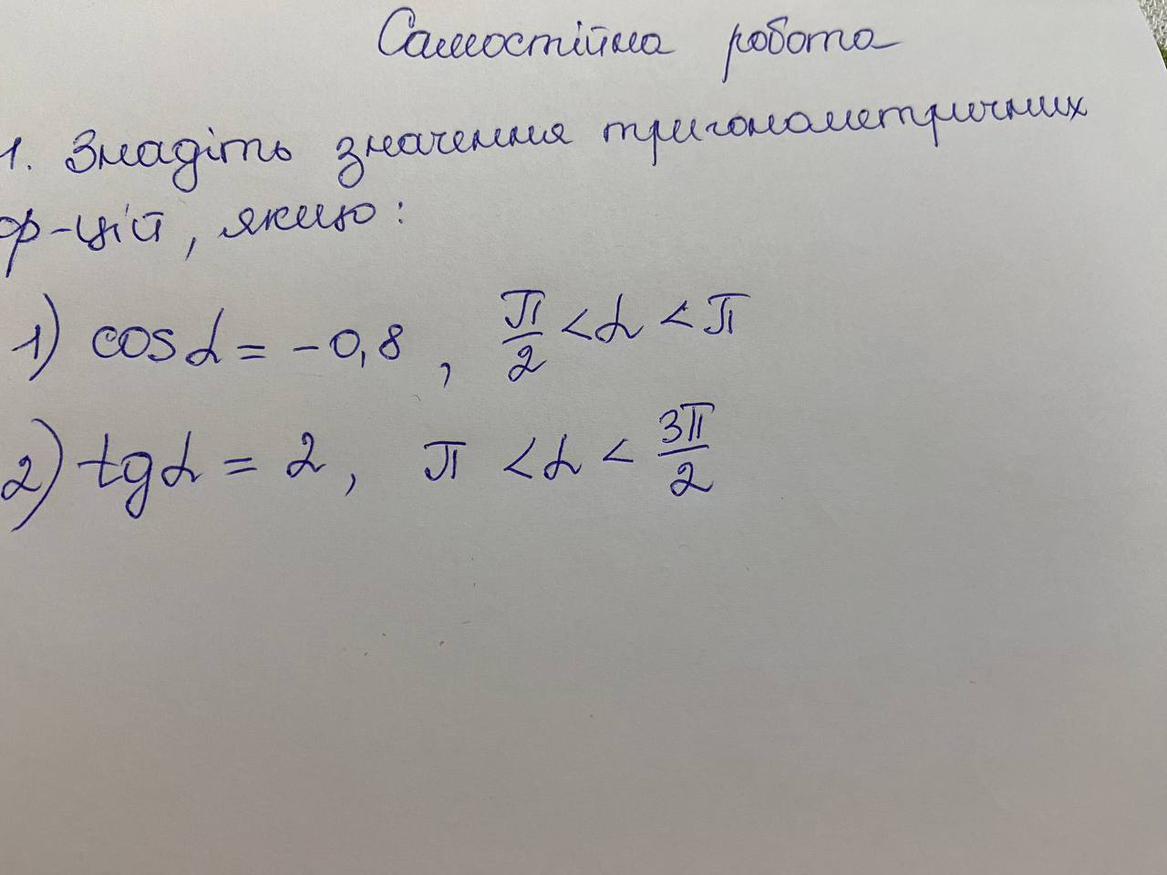 Самостійна робота
1. Знадіть значення тригонометричних
ф-цій, якщо:
1) cos α = -0,8 , π/2 < α < π
2) tg α = 2, π < α < 3π/2